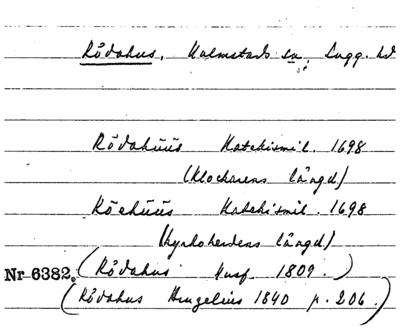 Rödahus, Malmstads sn, Lugg. hd
Rödahüüs Katekismil. 1698
(Klockarens längd)
Röehüüs Katekismil. 1698
(Kyrkoherdens längd)
Nr 6382. (Rödahus Husf. 1809.)
(Rödahus Hengelius 1840 p. 206.)